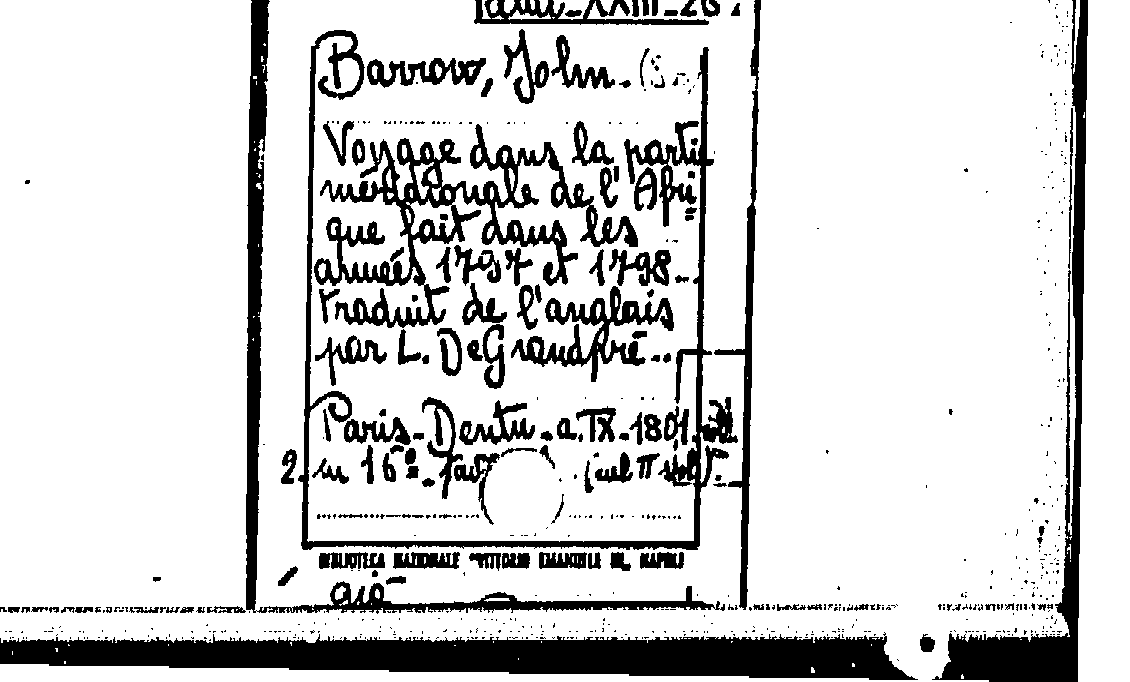 XXIII-26.
Barrow, John.
Voyage dans la partie
méridionale de l'Afri
que fait dans les
années 1797 et 1798...
traduit de l'anglais
par L. DeGrandpré...
Paris-Dentu-a. IX-1801.
2. in 16º-
BIBLIOTECA NAZIONALE "VITTORIO EMANUELE III" NAPOLI